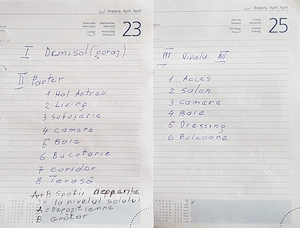 Апрель April April
23
I Demisol (garaj)
II Parter
1 Hol Antreu
2 Living
3 Sufragerie
4 camera
5 Baie
6 Bucatarie
7 coridor
8 Terasă
A+B Spatii
la nivelul solului
A = Depozit lemne
B Grătar
Апрель April April
25
III Nivelu
1 Acces
2 Salon
3 camera
4 Baie
5 Dressing
6 Balcoane